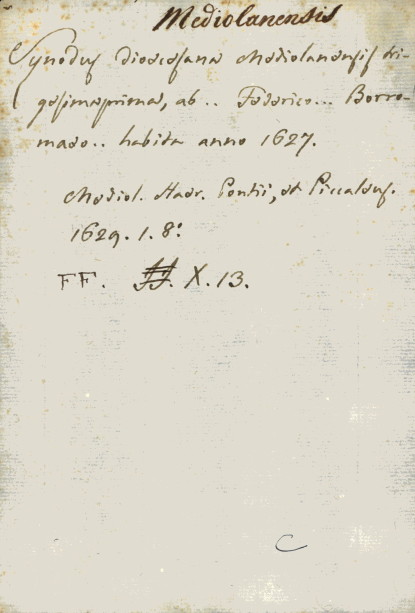 Mediolanensis
Synodus dioecesana Mediolanensis tri-
gesima prima, ab .. Federico ... Borro-
maeo .. habita anno 1627.
Mediol. Haer. Pontii, et Piccaleus.
1629. 1. 8º
FF. X. 13.
C